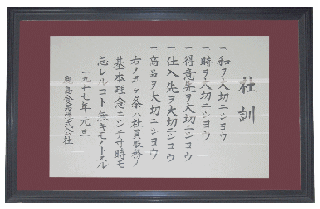 社訓
一 和ヲ大切ニシヨウ
一 時ヲ大切ニシヨウ
一 得意先ヲ大切ニシヨウ
一 仕入先ヲ大切ニシヨウ
一 商品ヲ大切ニシヨウ
右ノ五ヶ条ハ社員最終ノ
基本理念ニシテ寸時モ
忘レルコト無キモノトスル
一九七七年 元旦